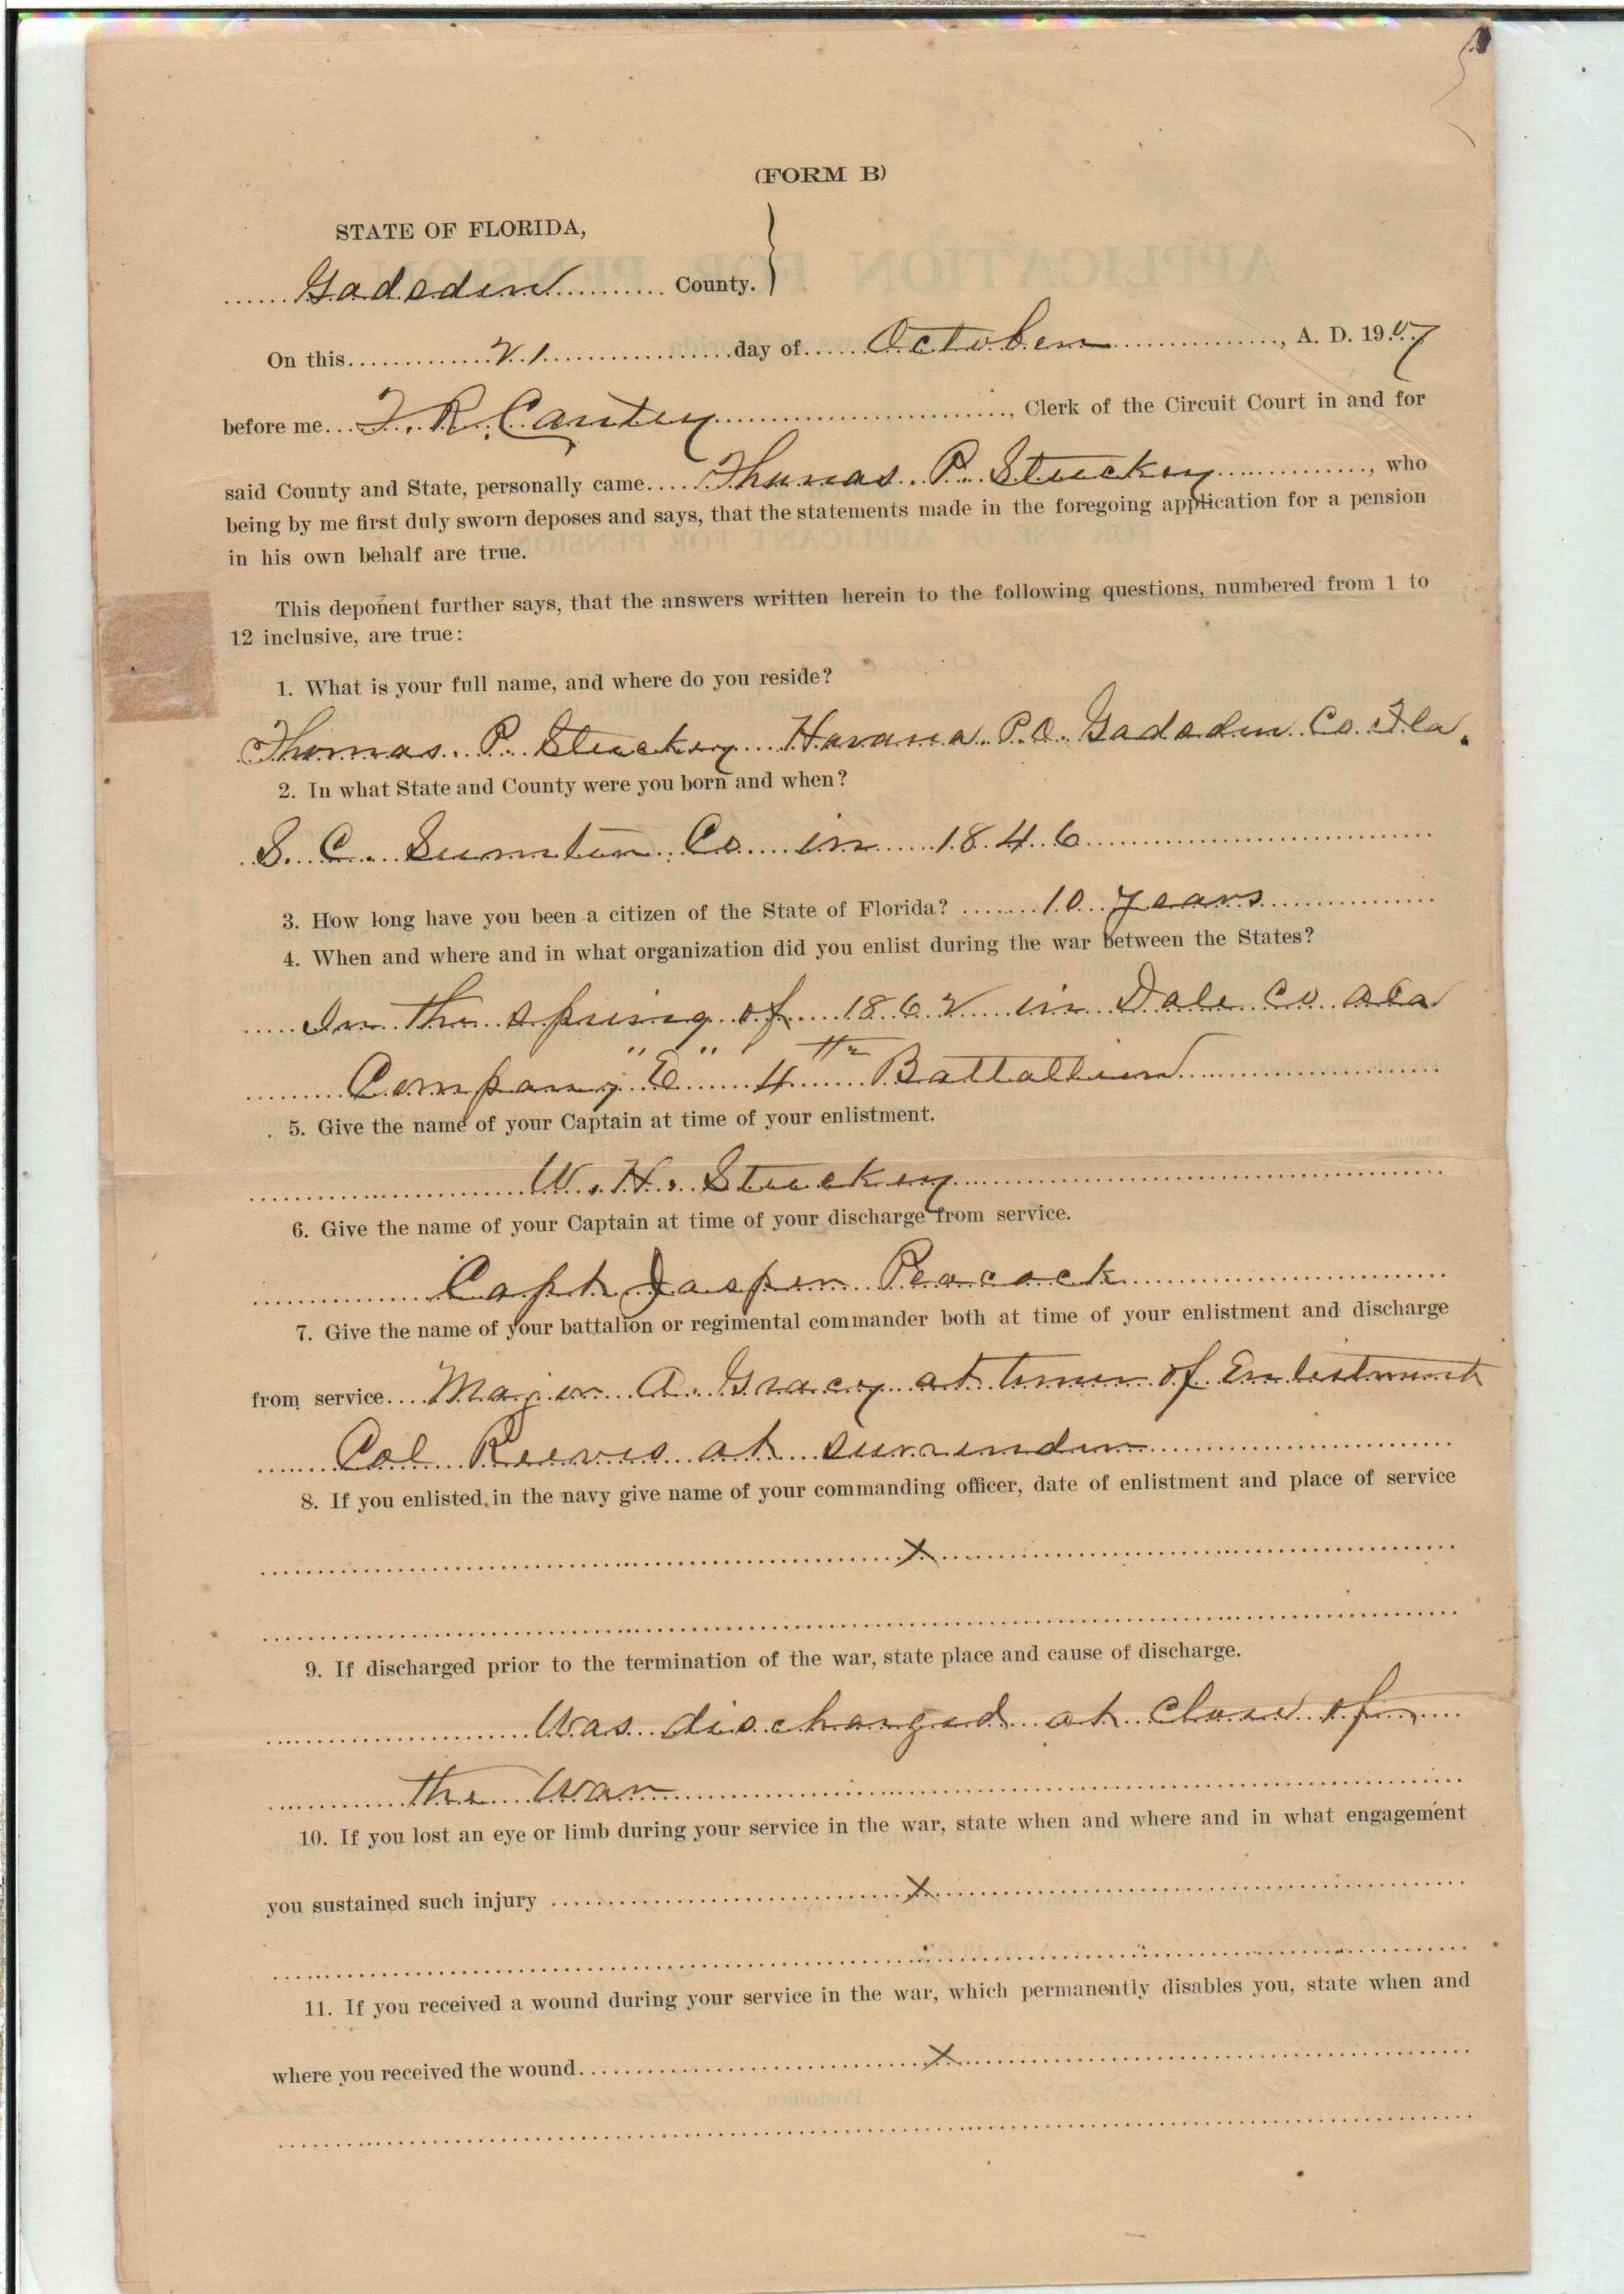 (FORM B)
STATE OF FLORIDA,
Gadsden County.
On this 21 day of October, A. D. 1907
before me J. R. Cantey, Clerk of the Circuit Court in and for
said County and State, personally came Thomas P. Stuckey, who
being by me first duly sworn deposes and says, that the statements made in the foregoing application for a pension
in his own behalf are true.
This deponent further says, that the answers written herein to the following questions, numbered from 1 to
12 inclusive, are true:
1. What is your full name, and where do you reside?
Thomas P. Stuckey Havana P.O. Gadsden Co. Fla.
2. In what State and County were you born and when?
S. C. Sumter Co in 1846
3. How long have you been a citizen of the State of Florida? 10 years
4. When and where and in what organization did you enlist during the war between the States?
In the spring of 1862 in Dale Co Ala
Company "E" 4th Battallion
5. Give the name of your Captain at time of your enlistment.
W. H. Stuckey
6. Give the name of your Captain at time of your discharge from service.
Capt Jasper Peacock
7. Give the name of your battalion or regimental commander both at time of your enlistment and discharge
from service Major A. Gracey at time of Enlistment
Col Reeves at surrender
8. If you enlisted in the navy give name of your commanding officer, date of enlistment and place of service
X
9. If discharged prior to the termination of the war, state place and cause of discharge.
Was discharged at Close of
the War
10. If you lost an eye or limb during your service in the war, state when and where and in what engagement
you sustained such injury X
11. If you received a wound during your service in the war, which permanently disables you, state when and
where you received the wound X